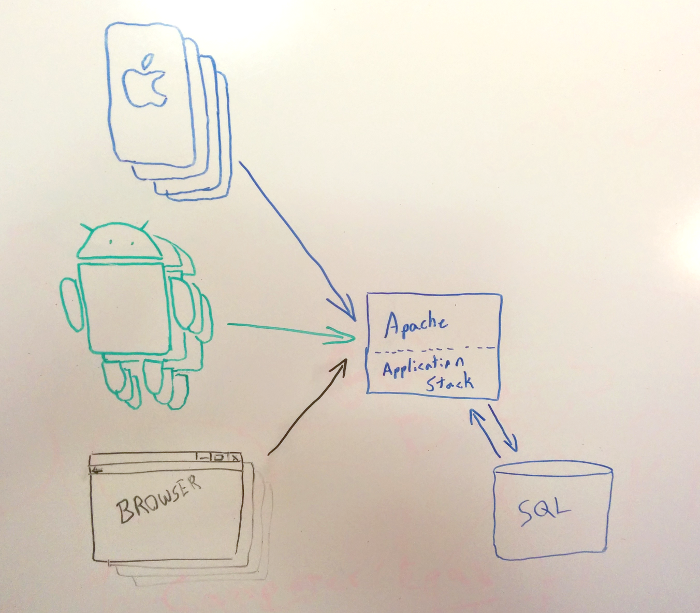 Apache
Application
Stack
BROWSER
SQL